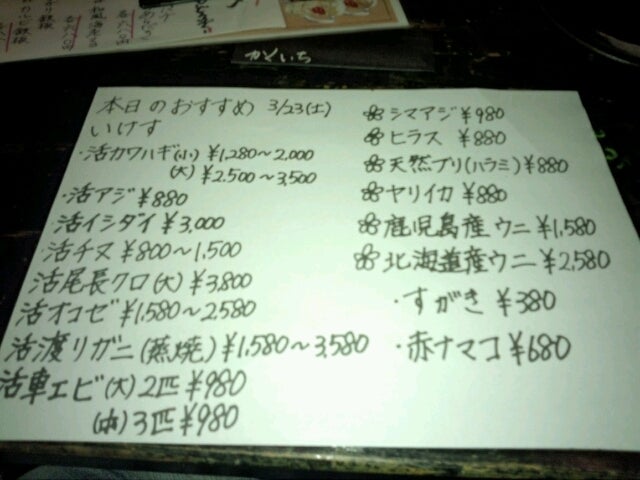 かどいち
本日のおすすめ 3/23(土)
いけす
・活カワハギ(小) ¥1,280〜2,000
(大) ¥2,500〜3,500
・活アジ ¥880
活イシダイ ¥3,000
活チヌ ¥800〜1,500
活尾長クロ(大) ¥3,800
活オコゼ ¥1,580〜2,580
活渡リガニ(蒸焼) ¥1,580〜3,580
活車エビ(大) 2匹 ¥980
(中) 3匹 ¥980
シマアジ ¥980
ヒラス ¥880
天然ブリ(ハラミ) ¥880
ヤリイカ ¥880
鹿児島産ウニ ¥1,580
北海道産ウニ ¥2,580
・すがき ¥380
・赤ナマコ ¥680